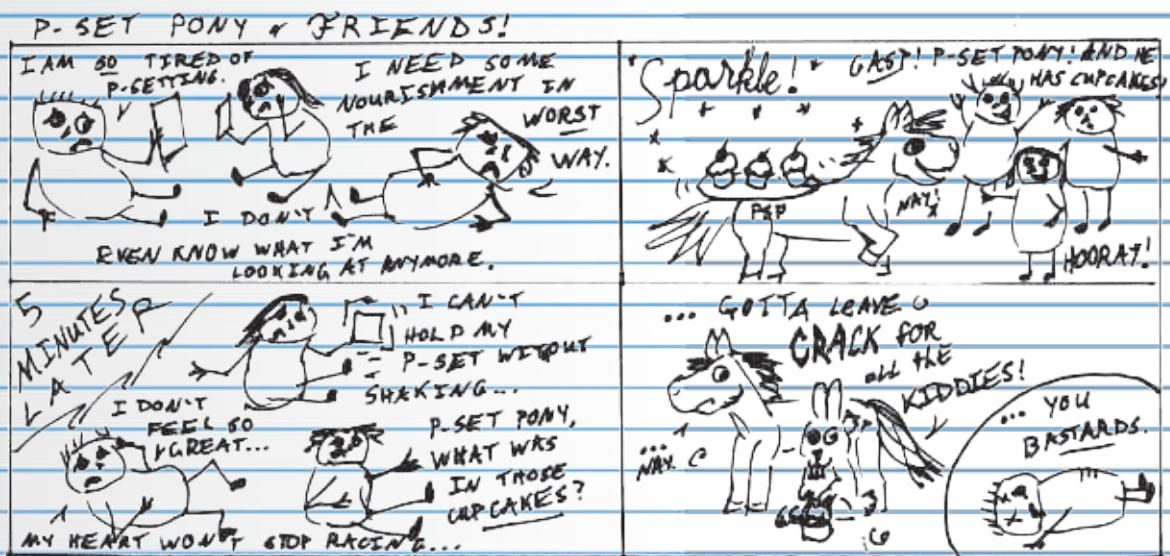 P-SET PONY & FRIENDS!
I AM SO TIRED OF
P-SETTING.
I NEED SOME
NOURISHMENT IN
THE
WORST
WAY.
I DON'T
EVEN KNOW WHAT I'M
LOOKING AT ANYMORE.
Sparkle!
GASP! P-SET PONY! AND HE
HAS CUPCAKES!
PSP
NAY!
HOORAY!
5
MINUTES
LATER
I CAN'T
HOLD MY
P-SET WITOUT
SHAKING...
I DON'T
FEEL SO
GREAT...
P-SET PONY,
WHAT WAS
IN THOSE
CUPCAKES?
MY HEART WON'T STOP RACING...
... GOTTA LEAVE
CRACK FOR
all the
KIDDIES!
...
NAY.
... YOU
BASTARDS.